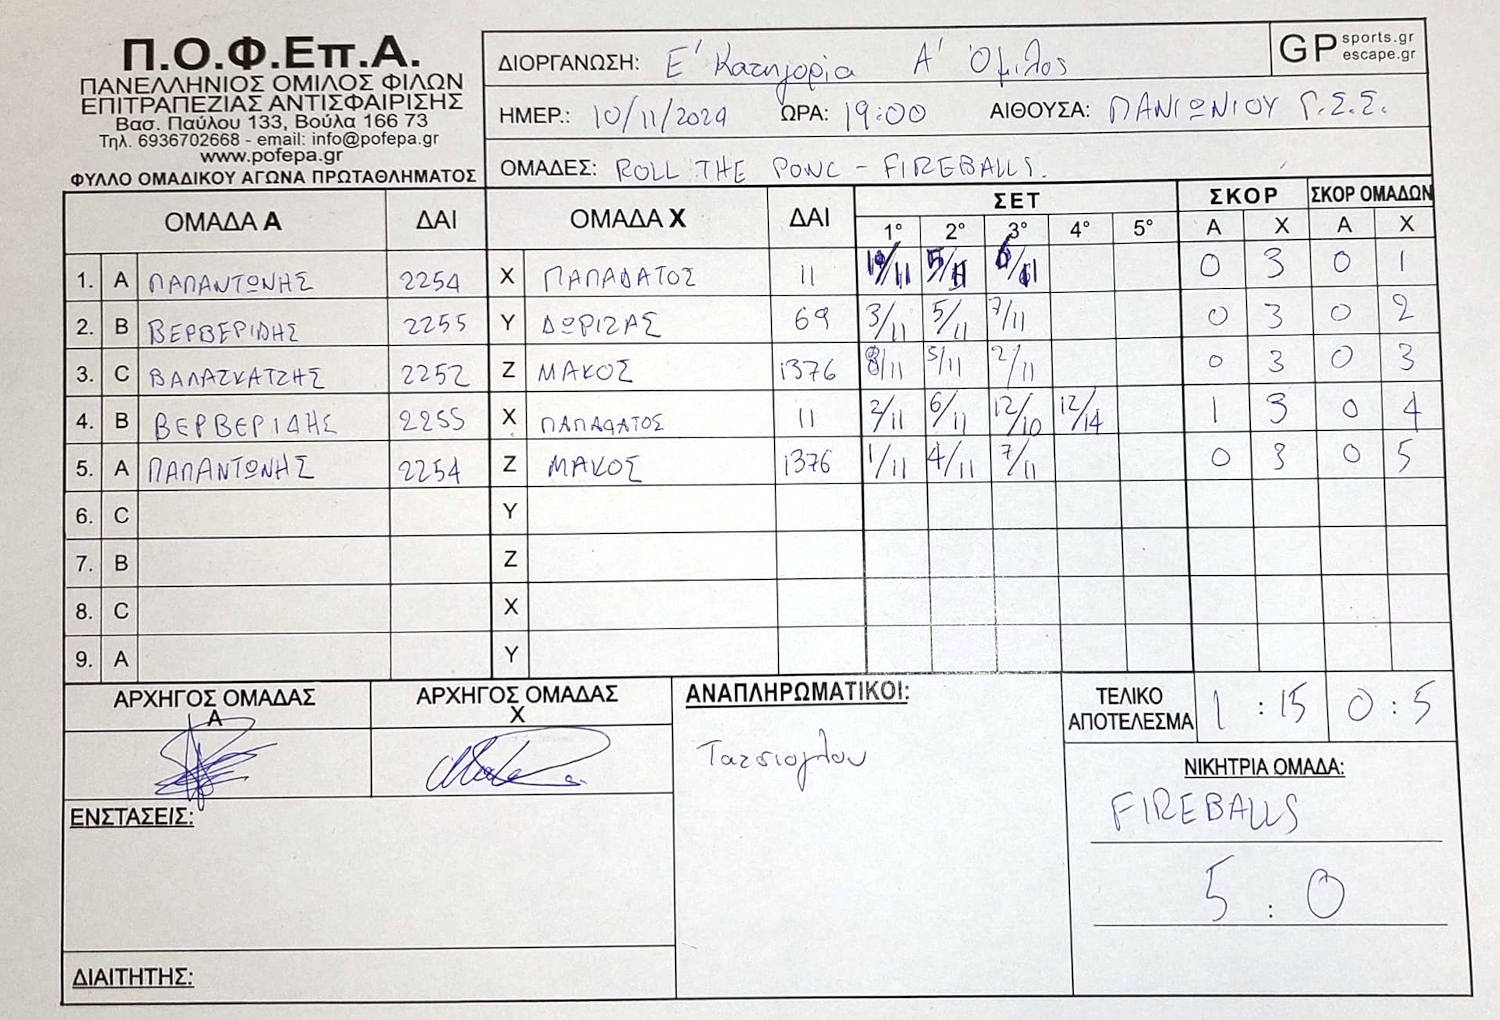 Π.Ο.Φ.Επ.Α.
ΠΑΝΕΛΛΗΝΙΟΣ ΟΜΙΛΟΣ ΦΙΛΩΝ
ΕΠΙΤΡΑΠΕΖΙΑΣ ΑΝΤΙΣΦΑΙΡΙΣΗΣ
Βασ. Παύλου 133, Βούλα 166 73
Τηλ. 6936702668 - email: info@pofepa.gr
www.pofepa.gr
ΦΥΛΛΟ ΟΜΑΔΙΚΟΥ ΑΓΩΝΑ ΠΡΩΤΑΘΛΗΜΑΤΟΣ
ΔΙΟΡΓΑΝΩΣΗ: Ε' Κατηγορία Α' Όμιλος
GP sports.gr escape.gr
ΗΜΕΡ.: 10/11/2024 ΩΡΑ: 19:00 ΑΙΘΟΥΣΑ: ΠΑΝΙΩΝΙΟΥ Γ.Σ.Σ.
ΟΜΑΔΕΣ: ROLL THE PONG - FIREBALLS.
ΟΜΑΔΑ Α ΔΑΙ ΟΜΑΔΑ Χ ΔΑΙ ΣΕΤ ΣΚΟΡ ΣΚΟΡ ΟΜΑΔΩΝ
1° 2° 3° 4° 5° Α Χ Α Χ
1. A ΠΑΠΑΝΤΩΝΗΣ 2254 X ΠΑΠΑΔΑΤΟΣ 11 0 3 0 1
2. B ΒΕΡΒΕΡΙΔΗΣ 2255 Y ΔΩΡΙΖΑΣ 69 3/11 5/11 7/11 0 3 0 2
3. C ΒΑΛΑΣΚΑΤΖΗΣ 2252 Z ΜΑΚΟΣ 1376 8/11 5/11 2/11 0 3 0 3
4. B ΒΕΡΒΕΡΙΔΗΣ 2255 X ΠΑΠΑΔΑΤΟΣ 11 2/11 6/11 12/10 12/14 1 3 0 4
5. A ΠΑΠΑΝΤΩΝΗΣ 2254 Z ΜΑΚΟΣ 1376 1/11 4/11 7/11 0 3 0 5
6. C Y
7. B Z
8. C X
9. A Y
ΑΡΧΗΓΟΣ ΟΜΑΔΑΣ Α
ΑΡΧΗΓΟΣ ΟΜΑΔΑΣ Χ
ΑΝΑΠΛΗΡΩΜΑΤΙΚΟΙ:
ΤΕΛΙΚΟ ΑΠΟΤΕΛΕΣΜΑ 1 : 15 0 : 5
ΝΙΚΗΤΡΙΑ ΟΜΑΔΑ:
FIREBALLS
5 : 0
ΕΝΣΤΑΣΕΙΣ:
ΔΙΑΙΤΗΤΗΣ: